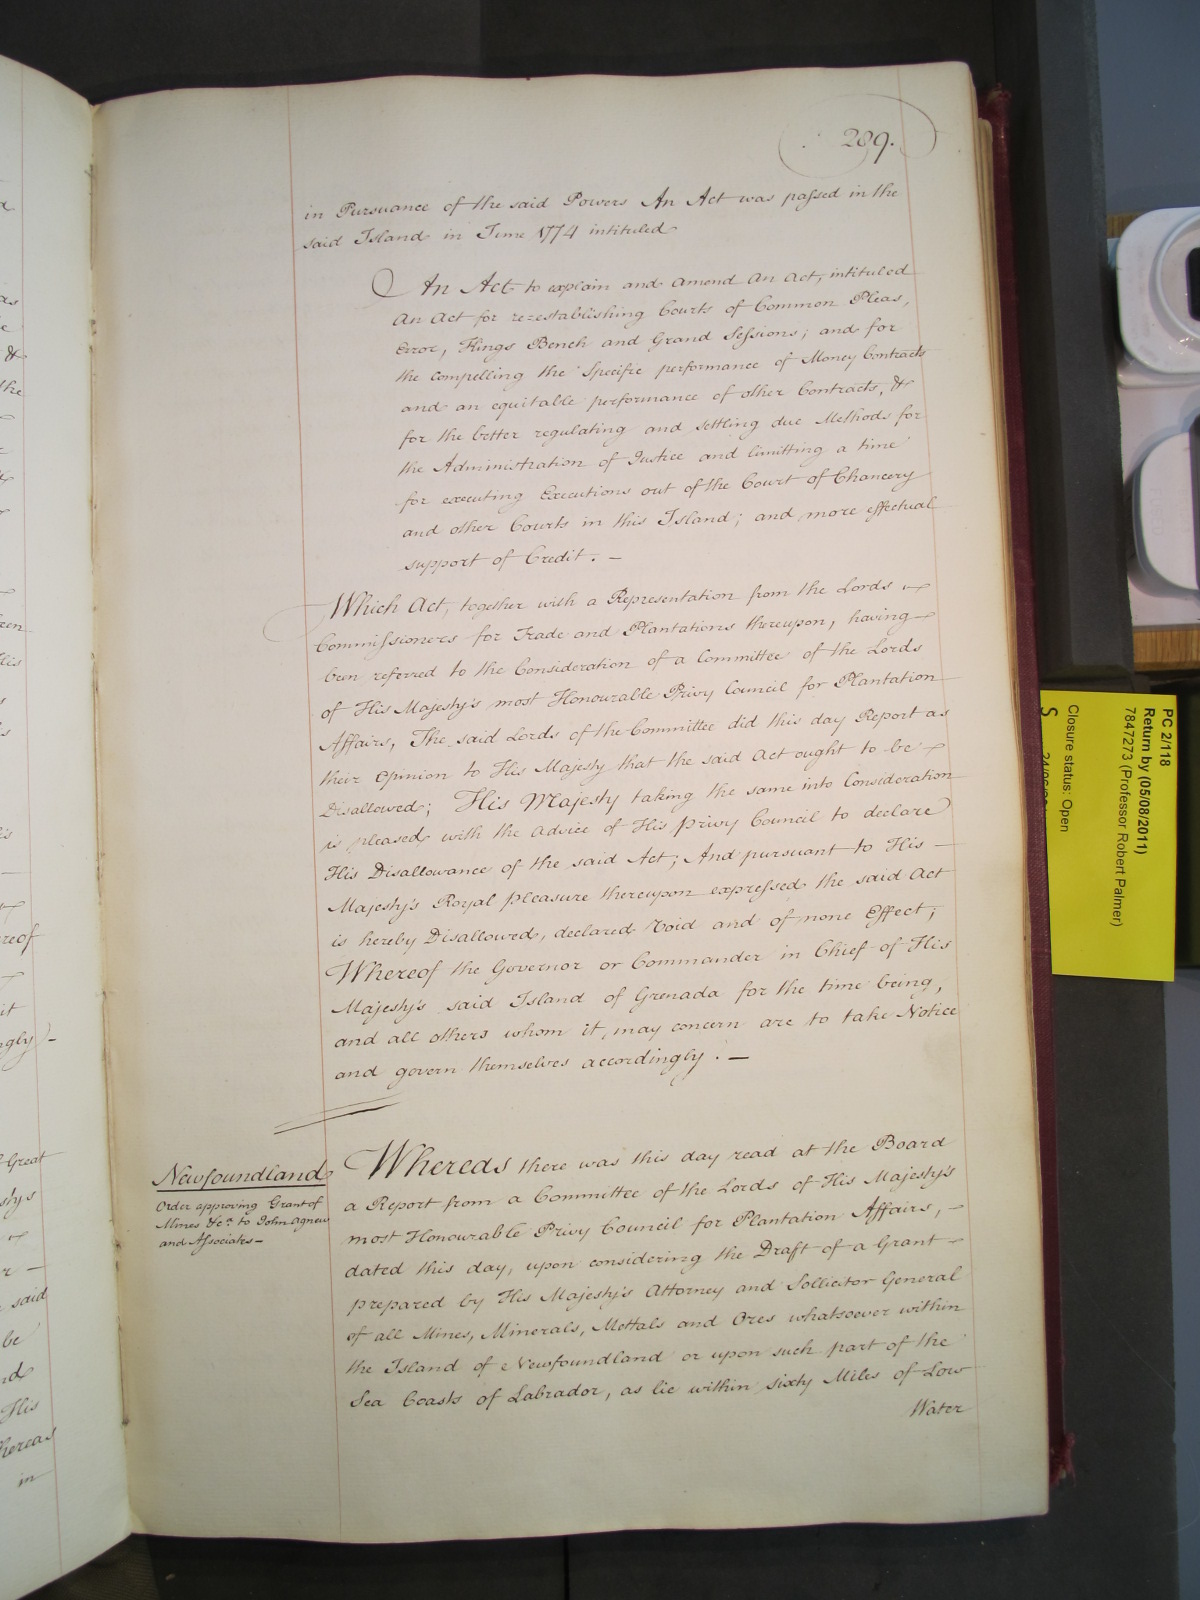 289.
in Pursuance of the said Powers An Act was passed in the
said Island in June 1774 intituled
An Act to explain and amend An Act, intituled
An Act for re=establishing Courts of Common Pleas,
Error, Kings Bench and Grand Sessions; and for
the compelling the Specific performance of Money Contracts
and an equitable performance of other Contracts, &
for the better regulating and settling due Methods for
the Administration of Justice and limitting a time
for executing Executions out of the Court of Chancery
and other Courts in this Island; and more effectual
support of Credit. —
Which Act, together with a Representation from the Lords
Commissioners for Trade and Plantations thereupon, having
been referred to the Consideration of a Committee of the Lords
of His Majesty's most Honourable Privy Council for Plantation
Affairs, The said Lords of the Committee did this day Report as
their Opinion to His Majesty that the said Act ought to be
Disallowed; His Majesty taking the same into Consideration
is pleased with the Advice of His Privy Council to declare
His Disallowance of the said Act; And pursuant to His —
Majesty's Royal Pleasure thereupon expressed the said Act
is hereby Disallowed, declared Void and of none Effect;
Whereof the Governor or Commander in Chief of His
Majesty's said Island of Grenada for the time being,
and all others whom it may concern are to take Notice
and govern themselves accordingly. —
Newfoundland
Order approving Grant of
Mines &ca. to John Agnew
and Associates —
Whereas there was this day read at the Board
a Report from a Committee of the Lords of His Majesty's
most Honourable Privy Council for Plantation Affairs, —
dated this day, upon considering the Draft of a Grant —
prepared by His Majesty's Attorney and Sollicitor General
of all Mines, Minerals, Mettals and Ores whatsoever within
the Island of Newfoundland or upon such part of the
Sea Coasts of Labrador, as lie within sixty Miles of Low
Water
PC 2/118
Return by (05/08/2011)
7847273 (Professor Robert Palmer)
Closure status: Open
S